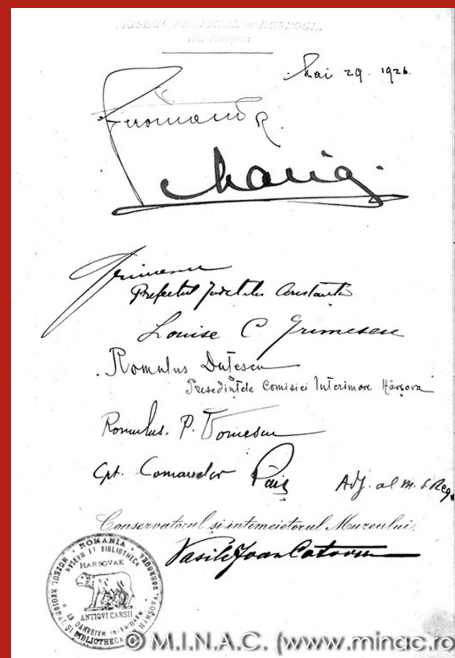 MUSEUL REGIONAL al DOBROGEI
din Hârșova
Mai 29. 1926.
Maria
Grimescu
Prefectul Județului Constanța
Louise C Grimescu
Romulus Duțescu
Președintele Comisiei Interimare Hârșova
Romulus. P.
Cpt. Comandor Păiș Adj. al M. S. Reg
Conservatorul și intemeietorul Muzeului.
Vasile Ioan Cotovu
ROMANIA
HARSOVAE
ANTIQVI CARSII
© M.I.N.A.C. (www.minac.ro